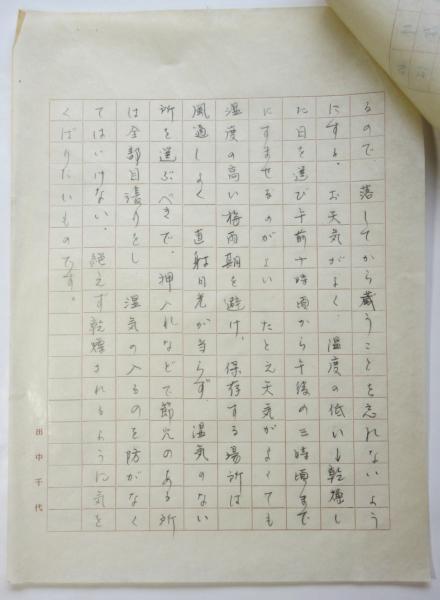 るので、落してから蔵うことを忘れないよう
にする。お天気がよく、温度の低い、乾燥し
た日を選び午前十時頃から午後の三時頃まで
にすませるのがよい。たとえ天気がよくても
湿度の高い梅雨期を避け、保存する場所は
風通しよく直射日光が当らず、湿気のない
所を選ぶべきで、押入れなどで節穴のある所
は全部目張りをし、湿気の入るのを防がなく
てはいけない。絶えず乾燥されるように気を
くばりたいものです。
田中千代